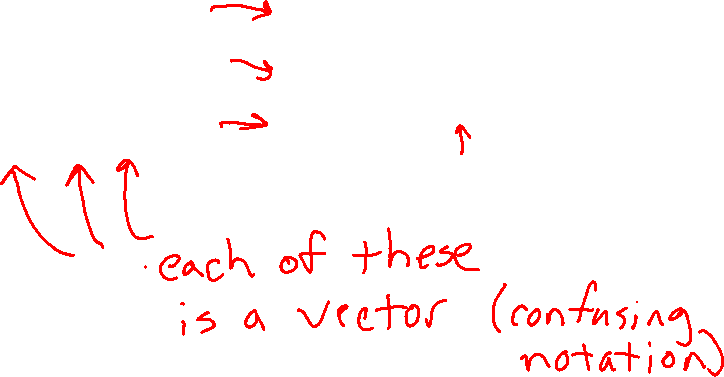 each of these
is a vector (confusing
notation)